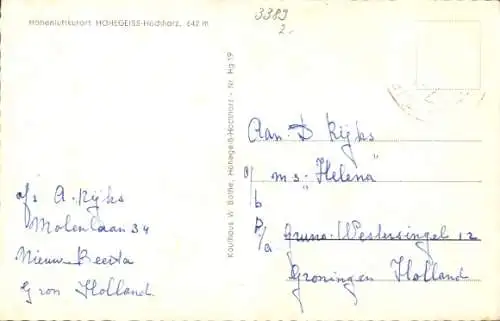 Höhenluftkurort HOHEGEISS-Hochharz, 642 m
3389
2.
Kaufhaus W. Bothe, Hohegeiß-Hochharz - Nr. Hg 19
Aan D Rijks
a/b m.s. "Helena"
p/a Gruno-Westersingel 12
Groningen Holland
afs A. Rijks
Molenlaan 34
Nieuw Beerta
Gron Holland